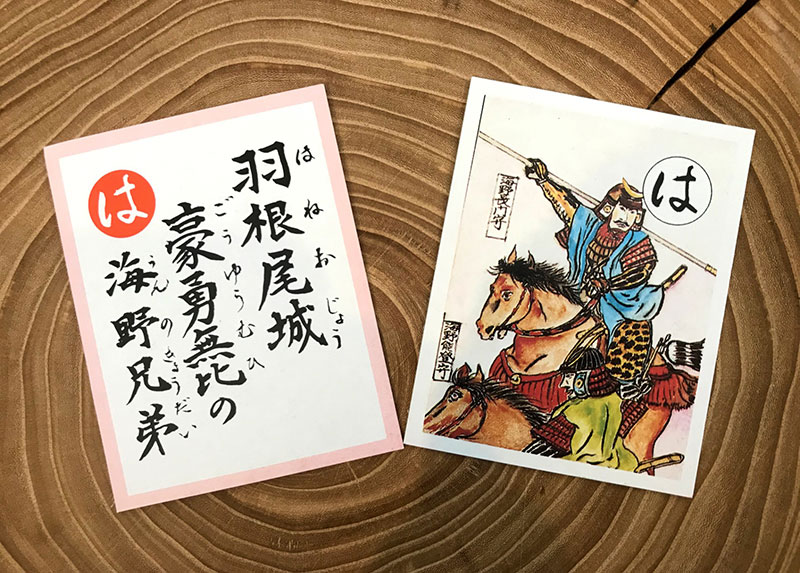 は
羽根尾城
はねおじょう
豪勇無比の
ごうゆうむひ
海野兄弟
うんのきょうだい
は
海野長門守
海野能登守